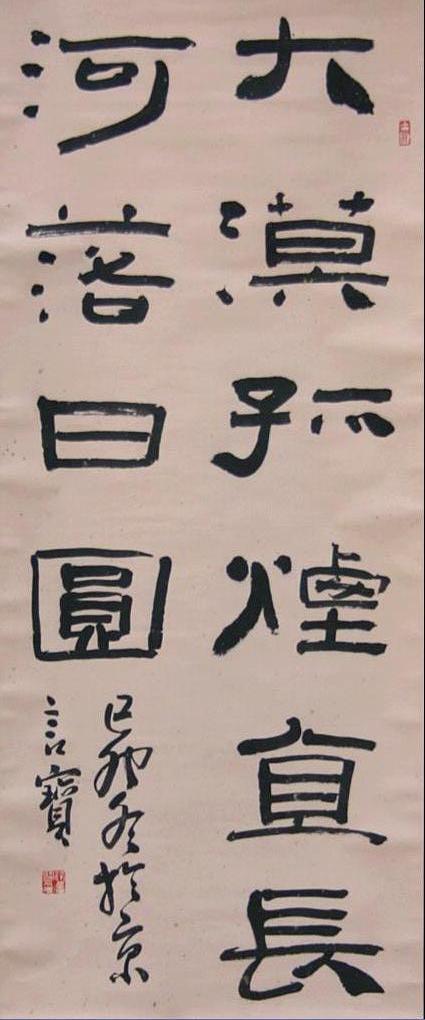 大漠孤煙直長
河落日圓
己卯冬於京
言寶